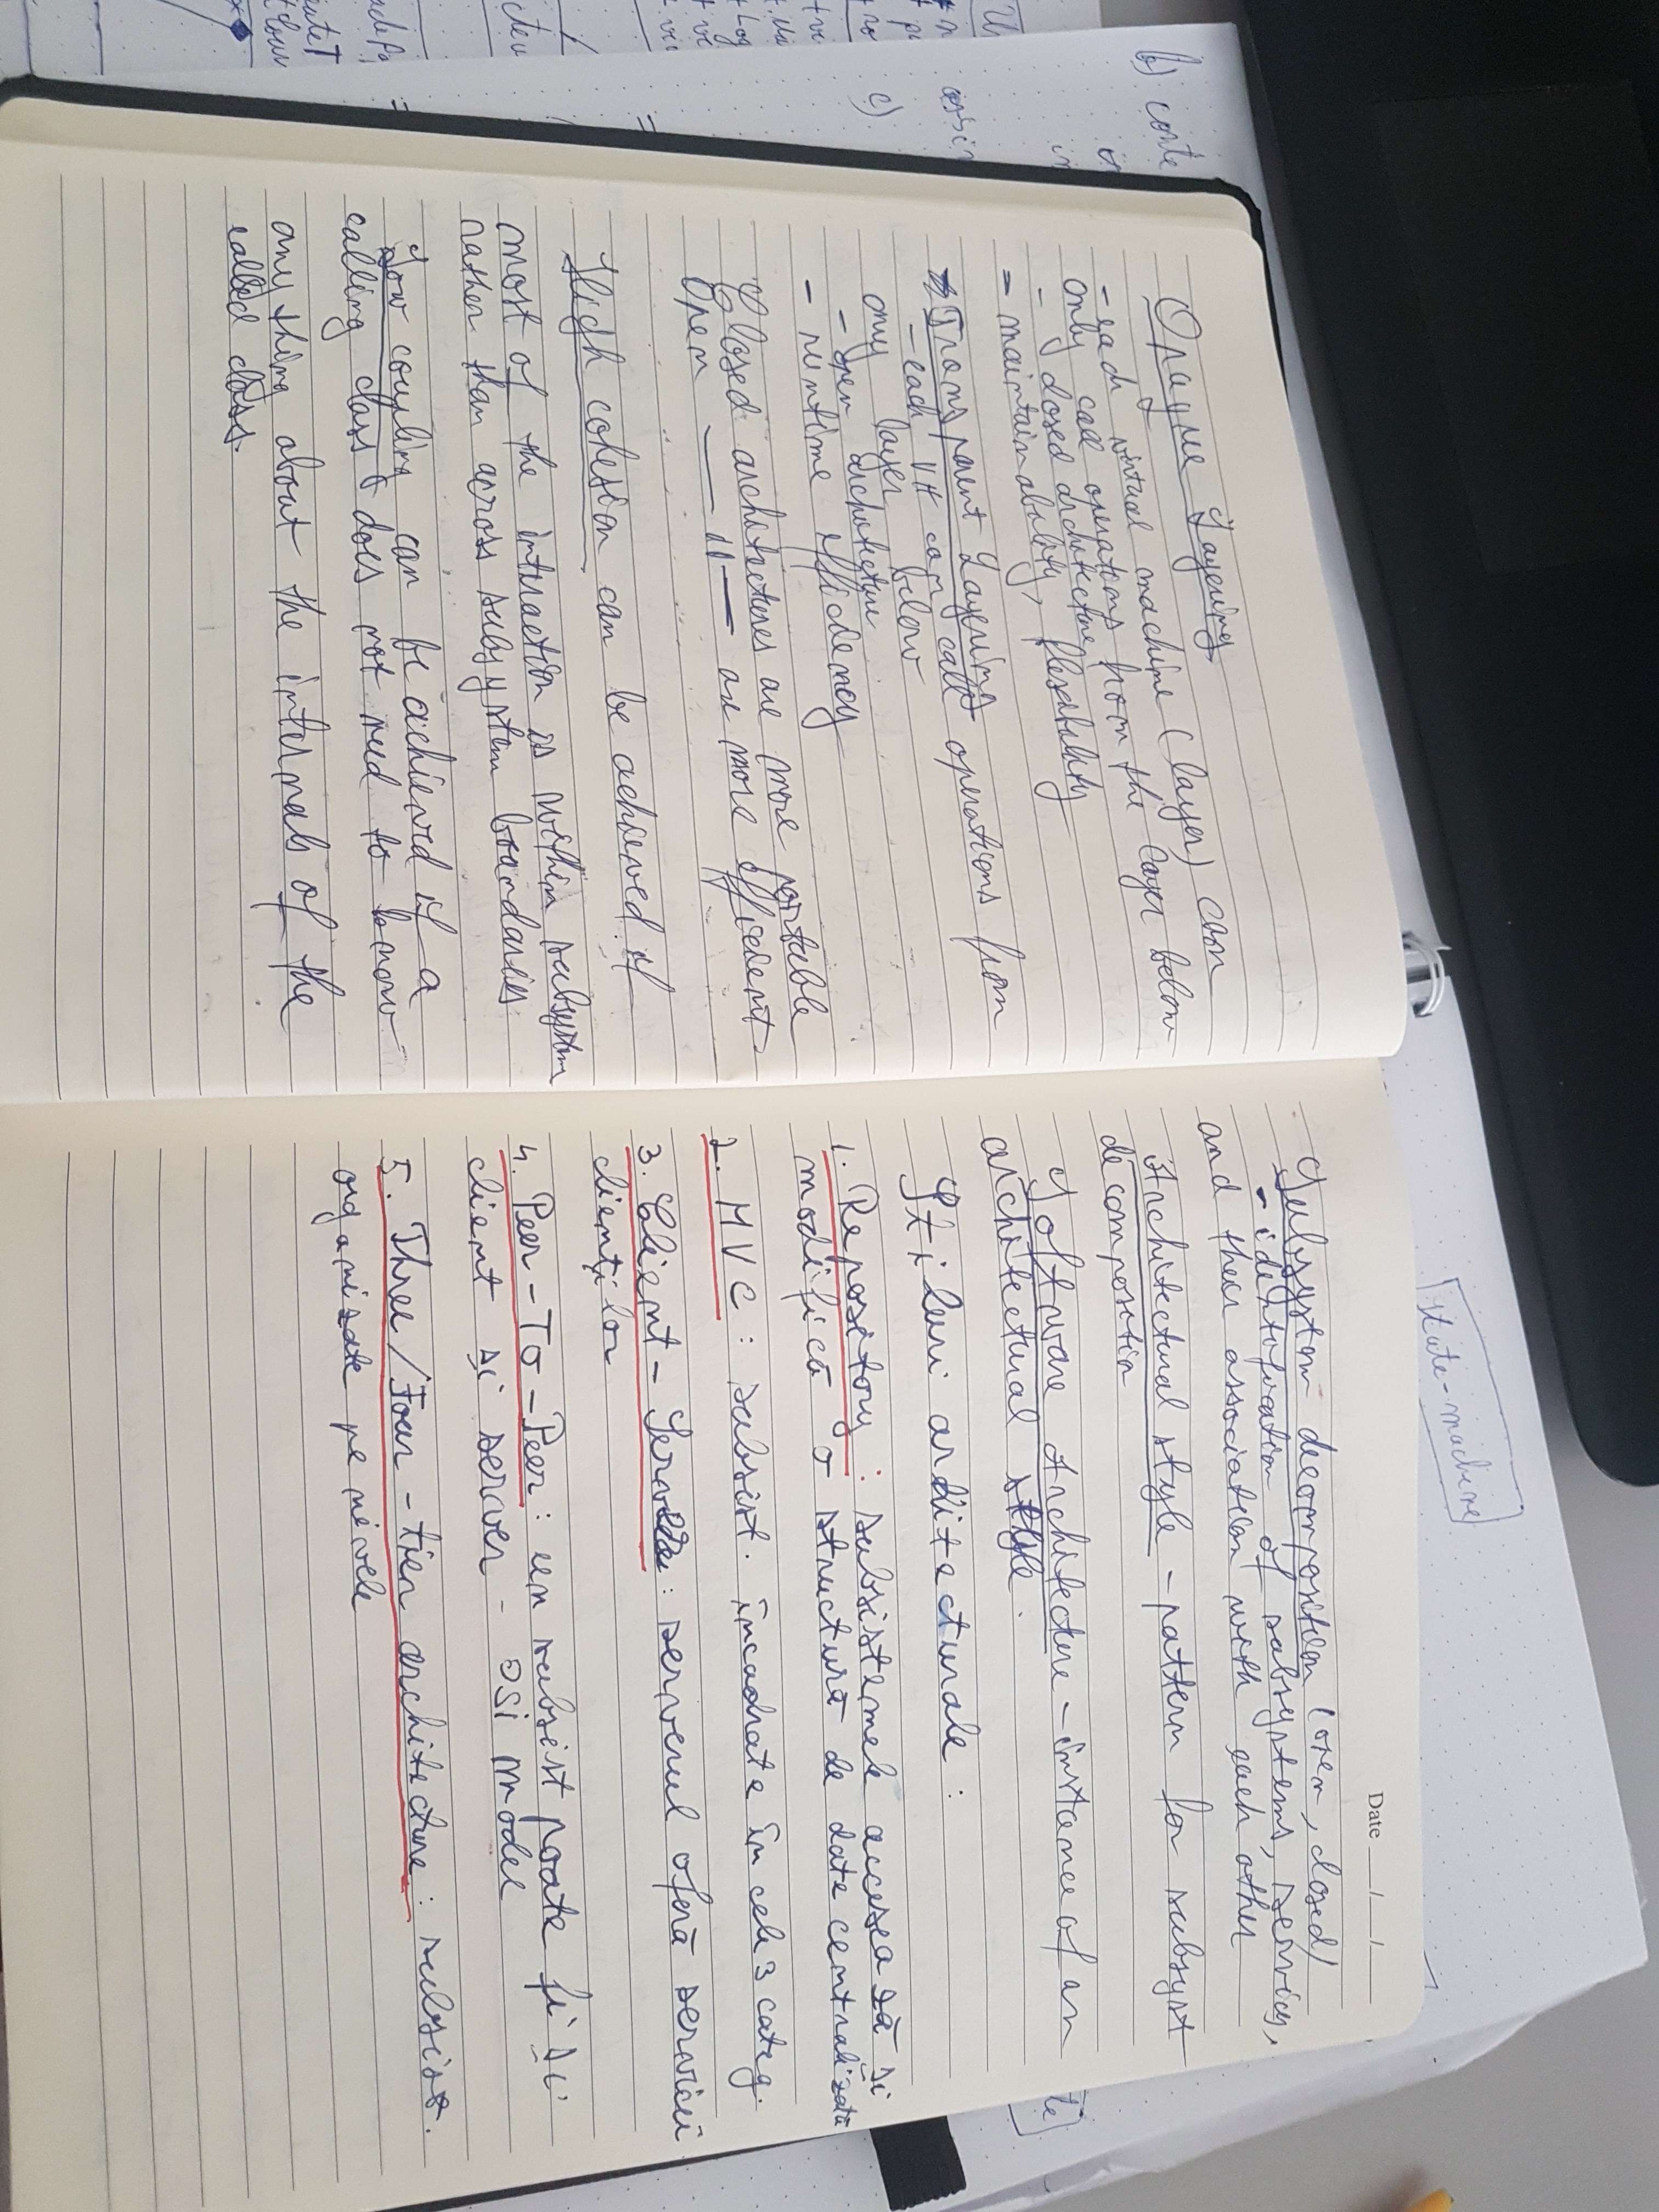 Opaque Layering
- each virtual machine (layer) can
only call operations from the layer below
- closed architecture
- maintainability, flexibility
Transparent Layering
- each VM can call operations from
any layer below
- open architecture
- runtime efficiency
Closed architectures are more portable
Open —— 11 —— are more efficient
High cohesion can be achieved if
most of the interaction is within subsystem
rather than across subsystem boundaries
Low coupling can be achieved if a
calling class does not need to know
anything about the internals of the
called class.
Date __/__/__
Subsystem decomposition (open, closed)
- identification of subsystems, services,
and their association with each other
Architectural style - pattern for subsyst
decomposition
Software Architecture - instance of an
architectural style.
Stiluri arhitecturale :
1. Repository : subsistemele accesea să și
modifică o structură de date centralizată
2. MVC : subsist. încadrate în cele 3 categ.
3. Client - Server : serverul oferă servicii
clienților
4. Peer - To - Peer : un subsist poate fi și
client și server - OSI model
5. Three / Four - tier architecture : subsist.
organizate pe nivele
state-machine
b) conte
c)